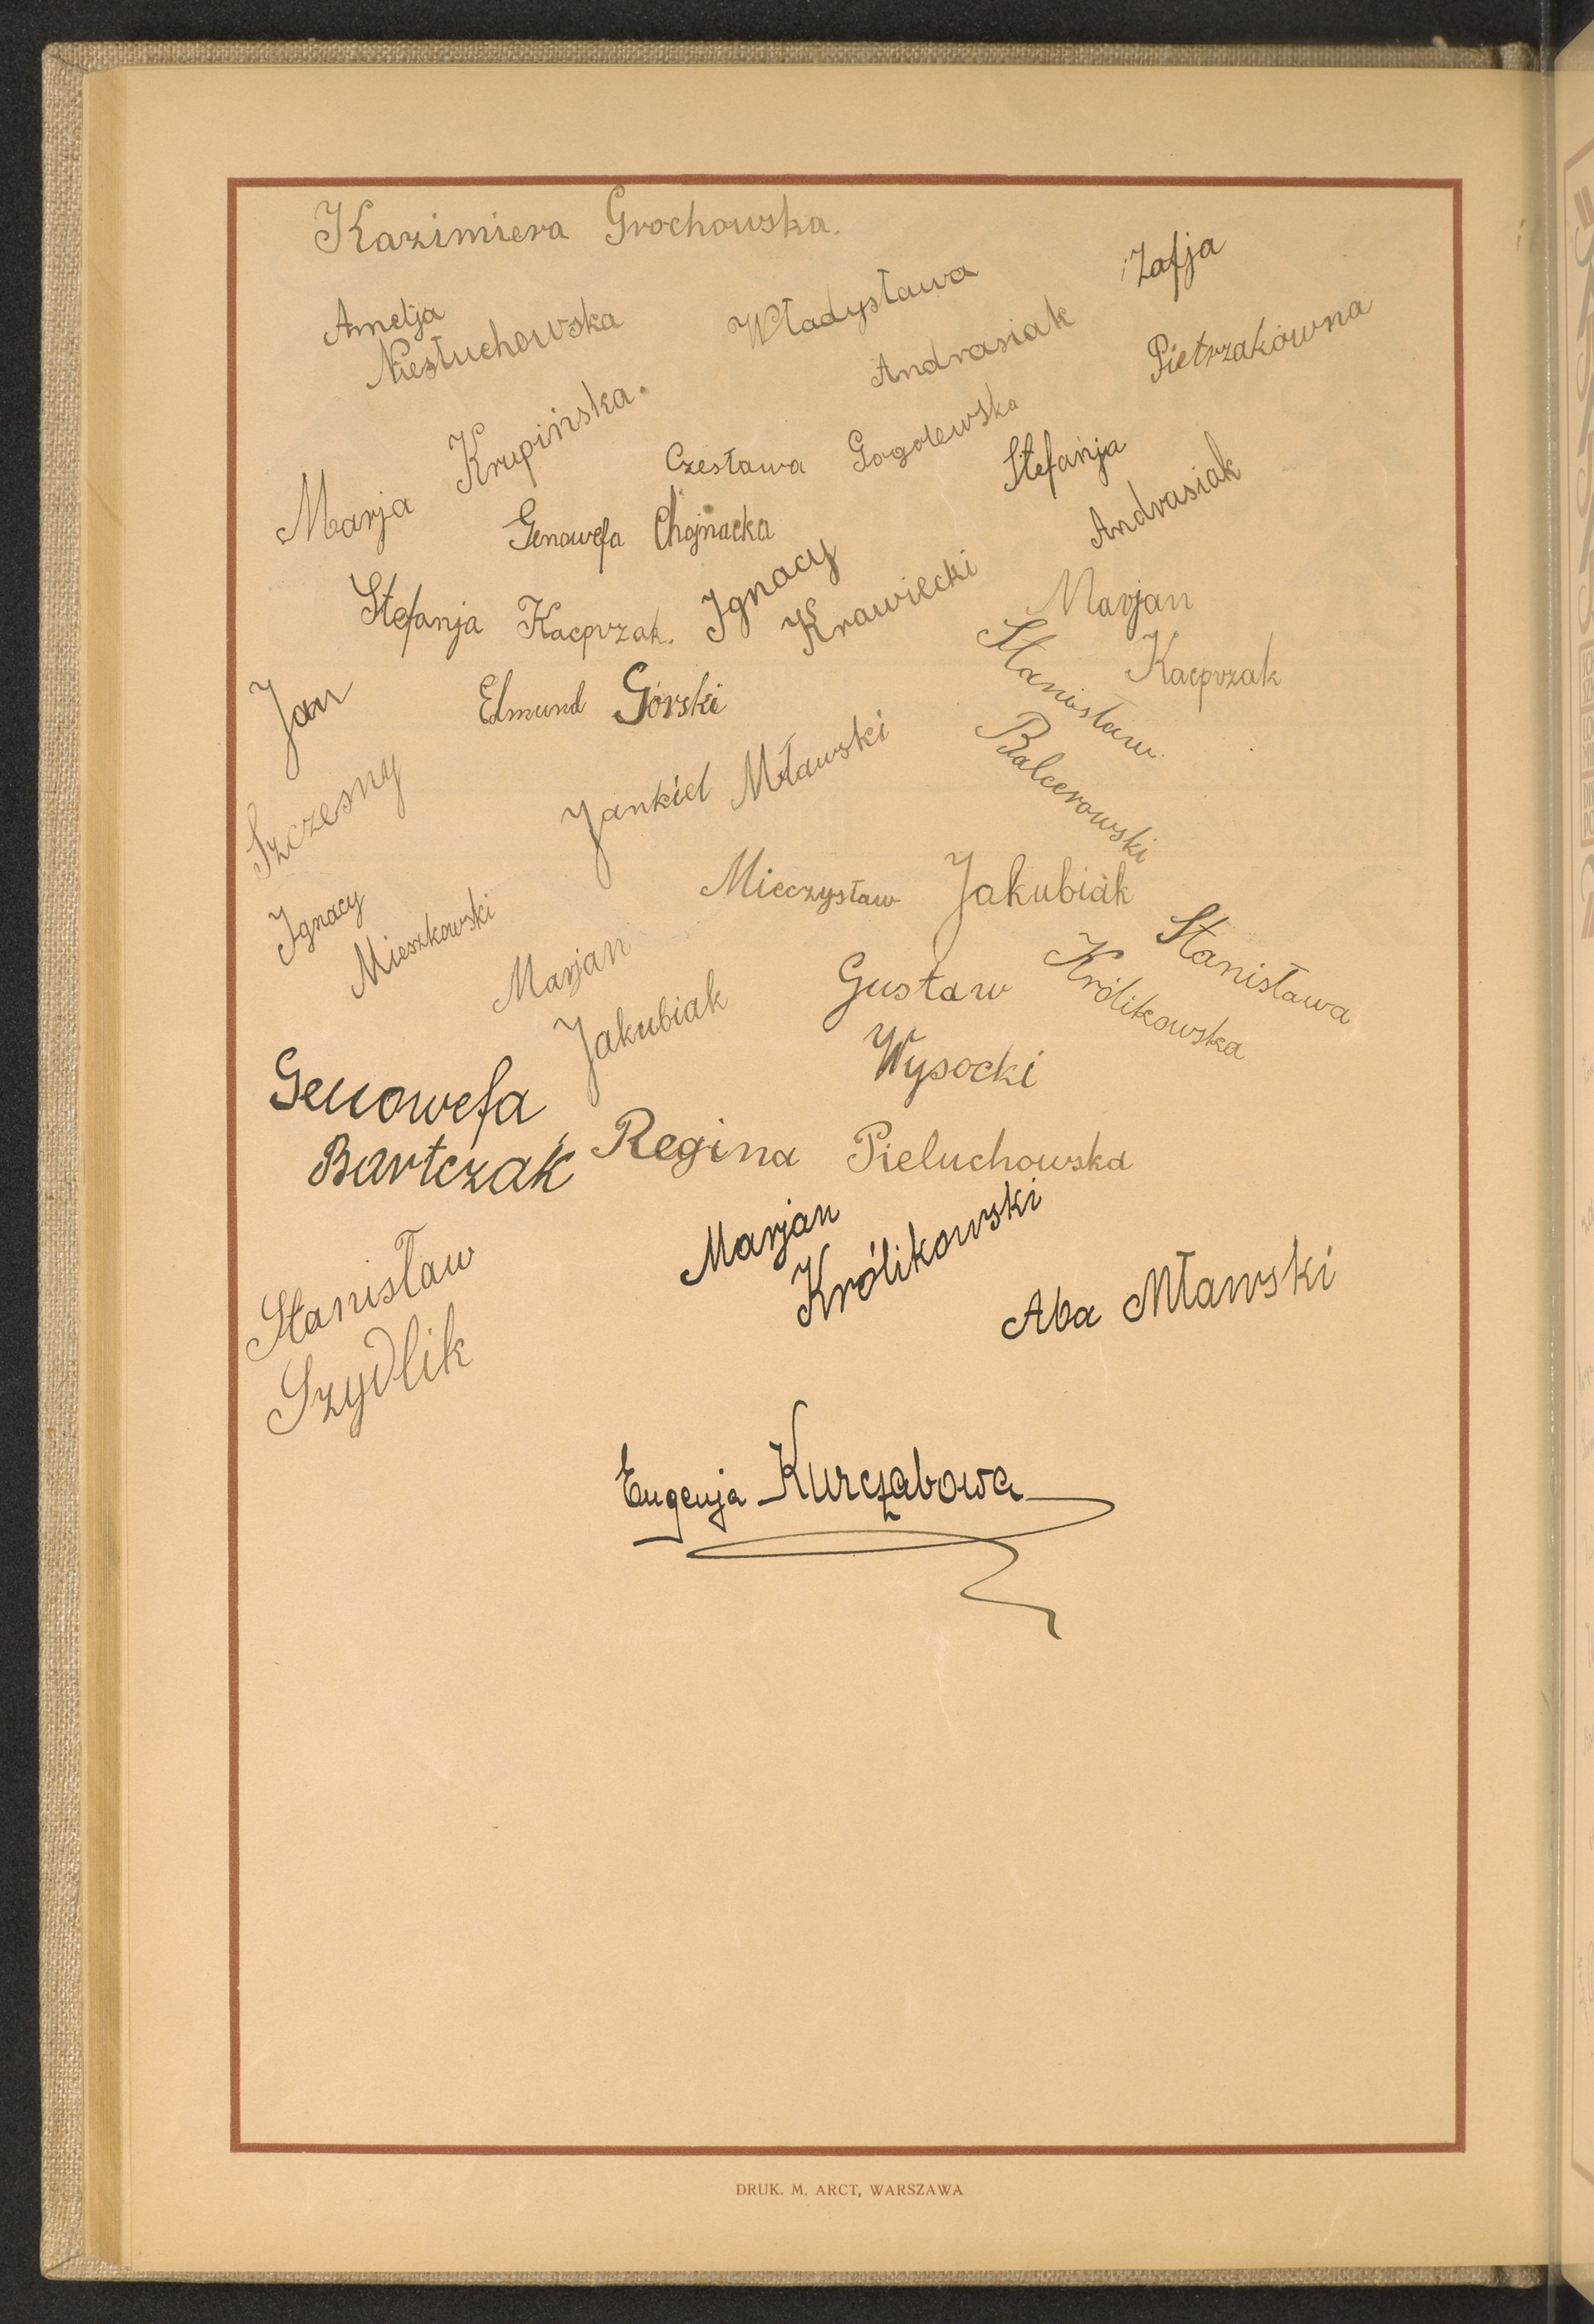 Kazimiera Grochowska.
Amelja
Niestuchowska
Władysława
Andrasiak
Zofja
Pietrzakówna
Marja Krupińska.
Czesława Gogolewska
Stefanja
Andrasiak
Genowefa Chojnacka
Stefanja Kacprzak.
Ignacy
Krawiecki
Marjan
Kacprzak
Stanisław
Balcerowski
Jan
Szczesny
Edmund Górski
Jankiel Mławski
Mieczysław Jakubiak
Ignacy
Mieszkowski
Marjan
Jakubiak
Gustaw
Wysocki
Stanisława
Królikowska
Genowefa
Bartczak
Regina Pieluchowska
Marjan
Królikowski
Stanisław
Szydlik
Aba Mławski
Eugenja Kurcząbowa
DRUK. M. ARCT, WARSZAWA